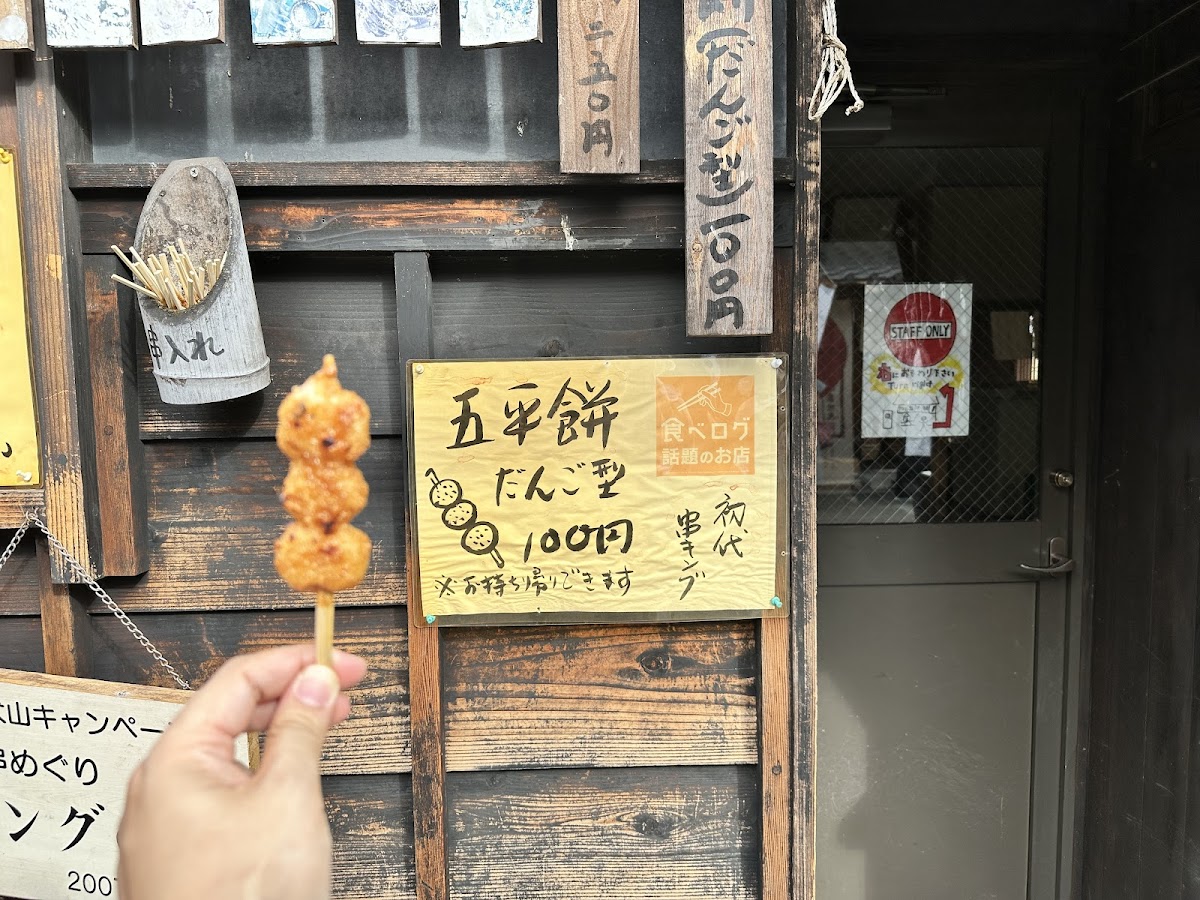 二五〇円
(だんご型)一〇〇円
串入れ
五平餅
だんご型
100円
※お持ち帰りできます
食べログ
話題のお店
初代
串キング
STAFF ONLY
右におまわり下さい
Turn right
山キャンペー
串めぐり
ング
200